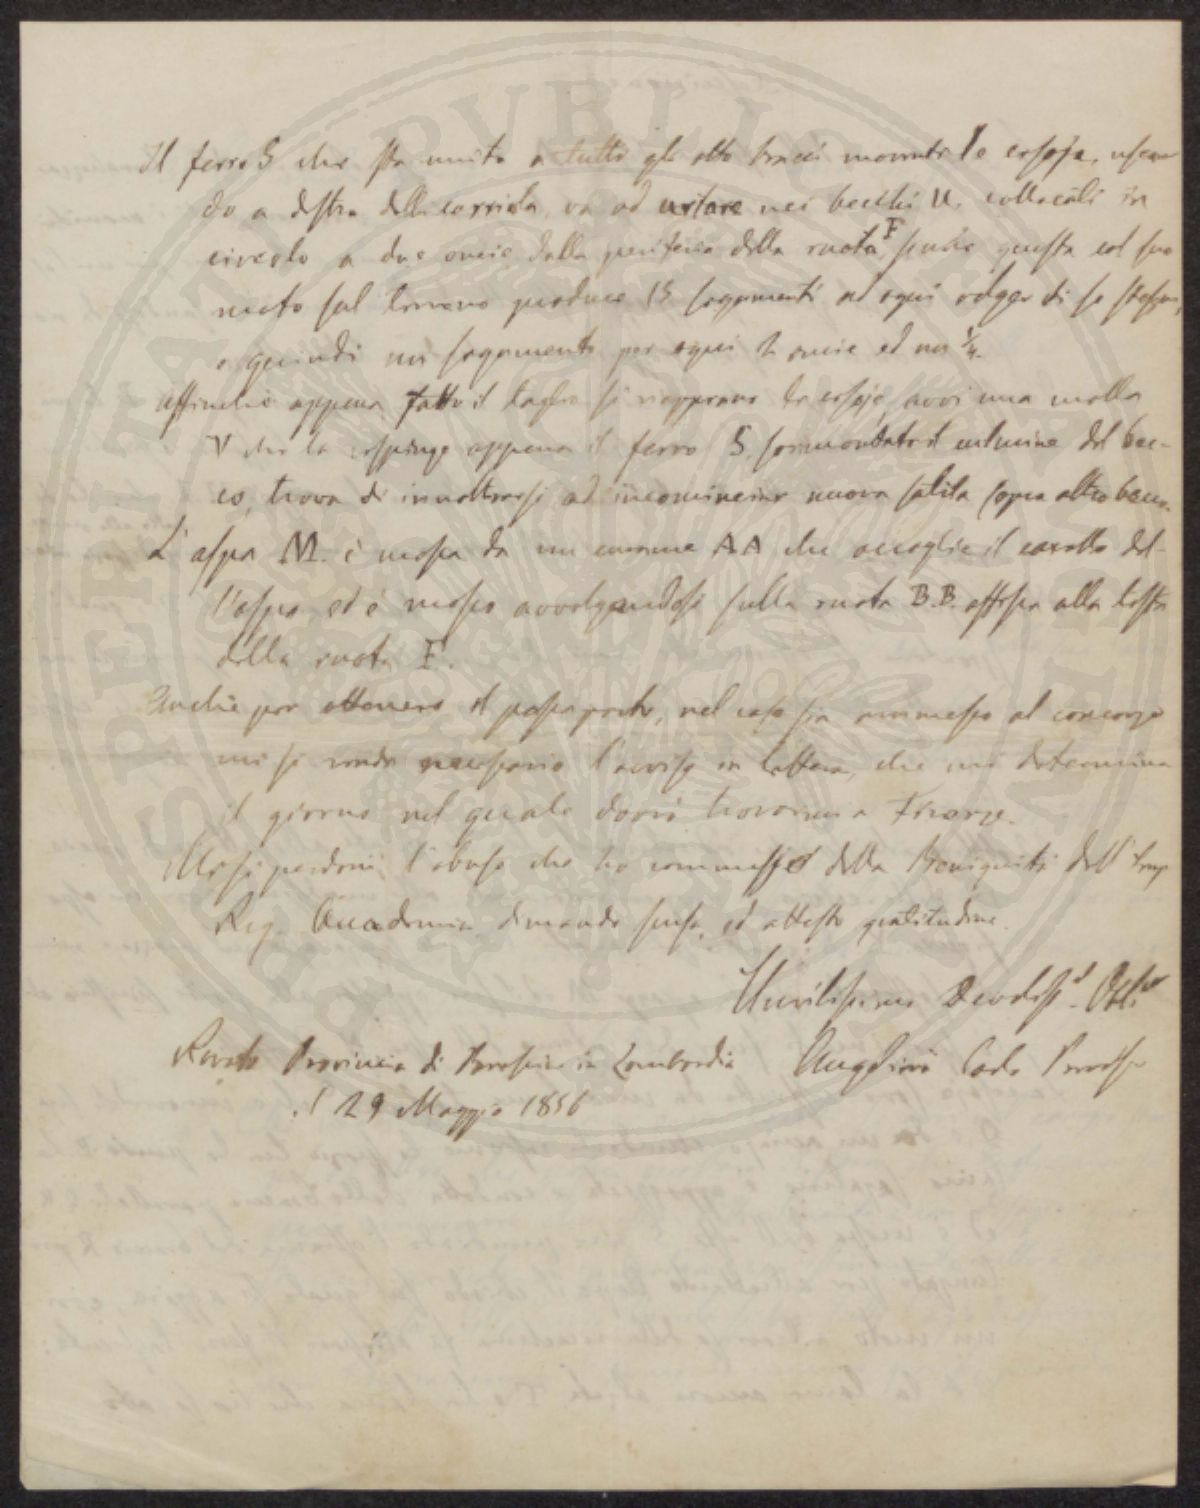 Il ferro S che sta unito a tutti gli otto bracci moventi le cesoje, uscen-
do a destra della carriola, va ad urtare nei becchi U. collocati in
circolo a due oncie dalla periferia della ruota F, sicché questa col suo
moto sul terreno produce 15 segamenti ad ogni volger di se stessa,
e quindi un segamento per ogni 2 oncie ed un ¼.
Affinchè appena fatto il taglio si riapprano le cesoje, avvi una molla
V che la respinge appena il ferro S, sormontato il culmine del bec-
co, trova di innoltrarsi ad incominciar nuova salita sopra altro becco.
L'aspa M. è mossa da un AA che accoglie il del-
l'aspo, ed è mosso avvolgendosi sulla ruota B.B. alla destra
della ruota F.
Anche per ottenere il passaporto, nel caso sia ammesso al concorso
mi si rende necessario l'avviso in lettera, che mi determina
il giorno nel quale dovrò trovarmi a Firenze.
Mi si perdoni l'abuso che ho commesso della Benignità dell'Imp
Reg. Accademia dimando scusa, ed attesto gratitudine.
Umilissimo Devotiss. Obb.
Rovato Provincia di Brescia in Lombardia Carlo
il 29 Maggio 1856